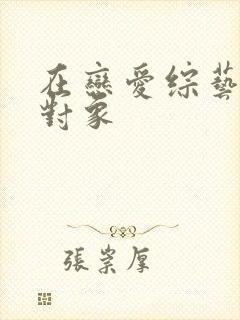 在戀愛綜藝
對象
張崇厚